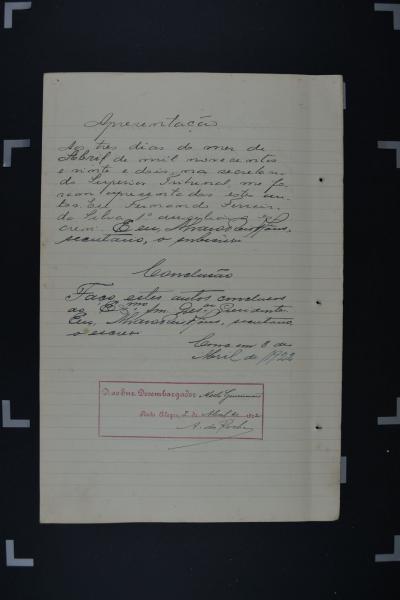 Apresentação
Aos tres dias do mez de
Abril de mil novecentos
e vinte e dois, na secretaria
do Superior Tribunal, me fo
ram apresentados estes au
tos. Eu Fernando Ferreira
da Silva, 1º
crevi. E eu,
secretario, o subscrevi.
Conclusão
Faço estes autos conclusos
ao Exmo. Snr. Desor. Presidente.
Eu, secretario
o escrevi
Concl. em 3 de
Abril de 1922
D. ao Exmo. Desembargador
Porto Alegre, de Abril de 1922
A. da Rocha